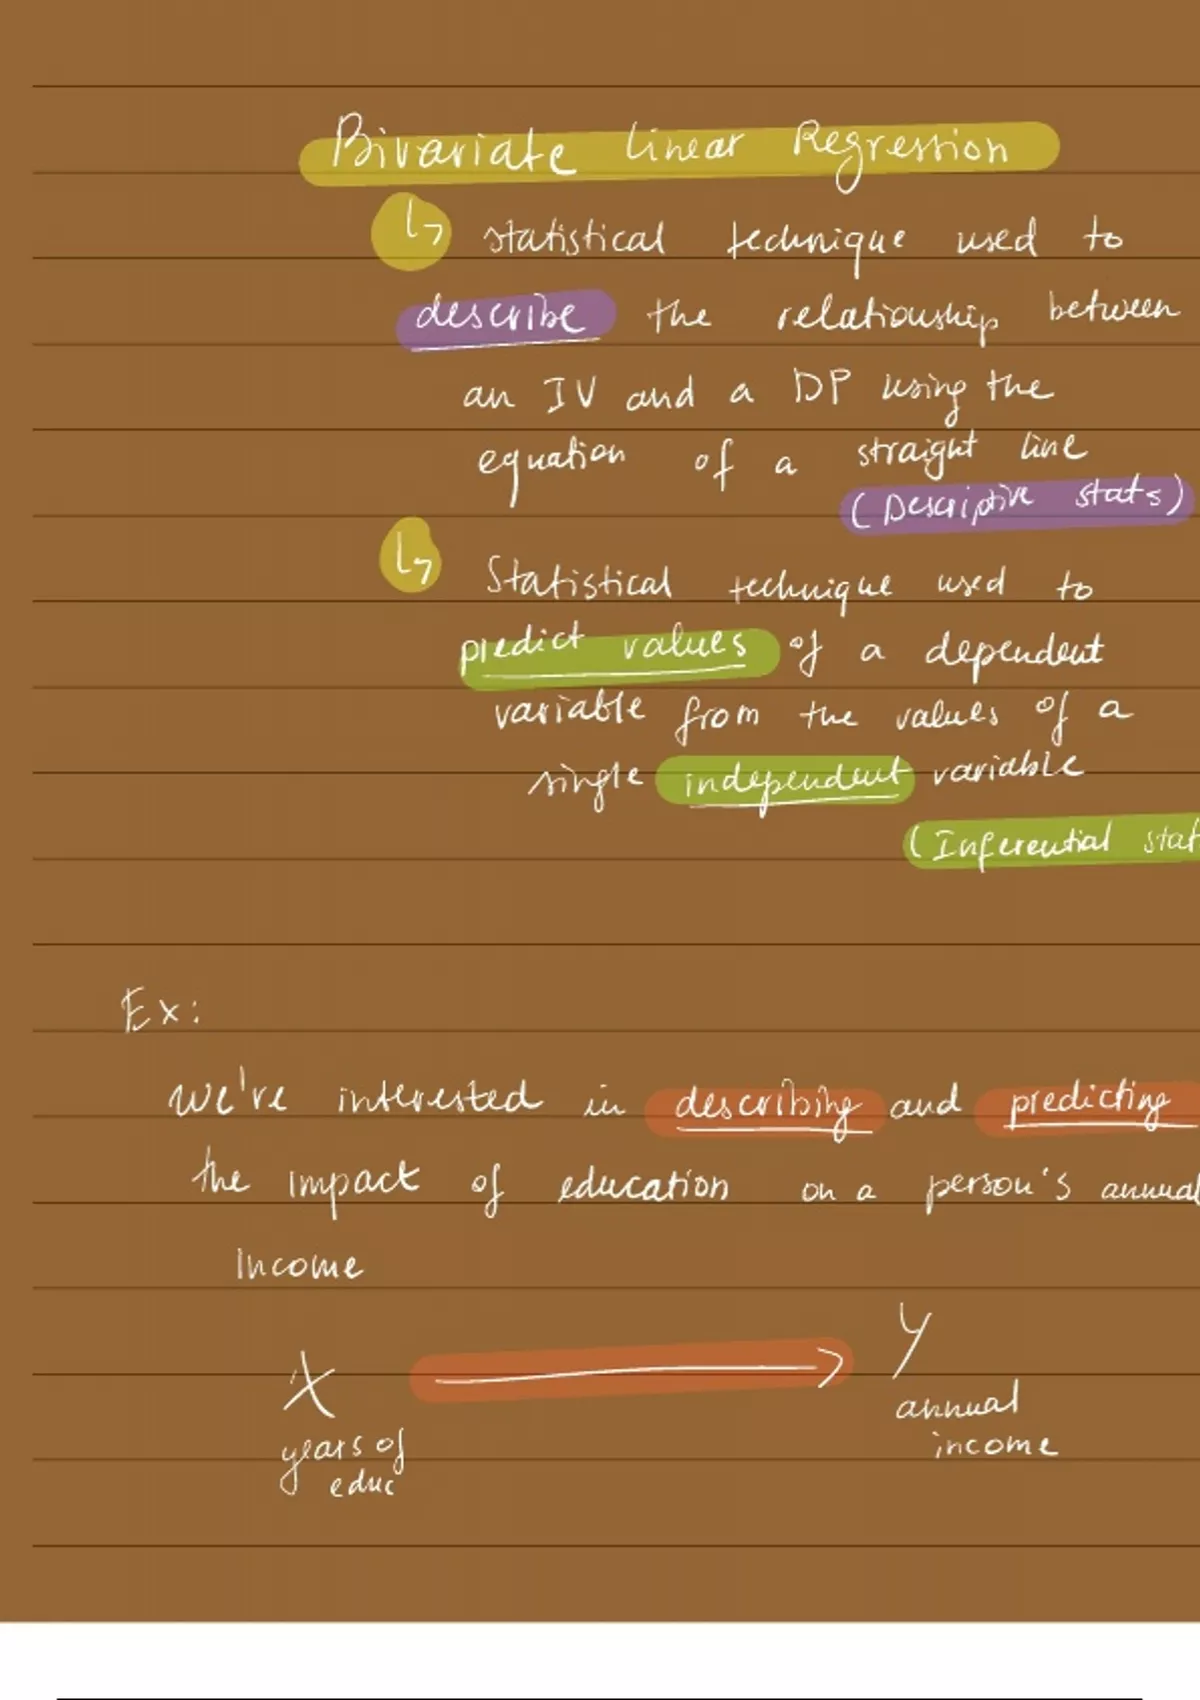 Bivariate Linear Regression
↳ statistical technique used to
describe the relationship between
an IV and a DP using the
equation of a straight line
(Descriptive stats)
↳ Statistical technique used to
predict values of a dependent
variable from the values of a
single independent variable
(Inferential stat
Ex:
We've interested in describing and predicting
the impact of education on a person's annual
Income
X → Y
years of educ
annual income